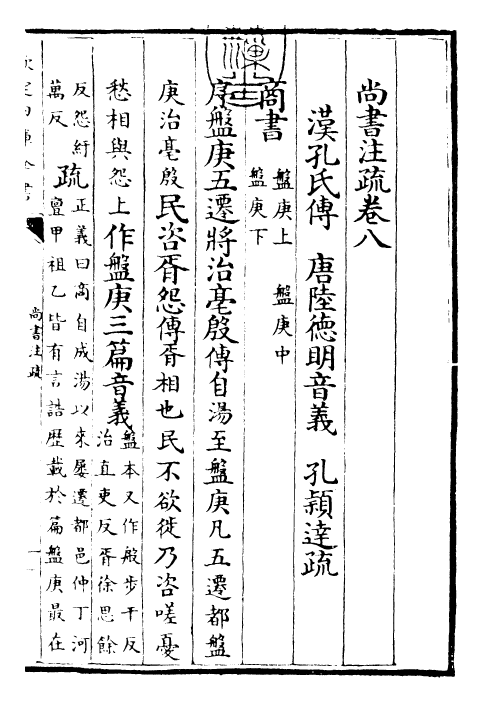 尚書注疏卷八
漢孔氏傳 唐陸徳明音義 孔穎達疏
商書
盤庚上 盤庚中
盤庚下
序盤庚五遷將治亳殷傳自湯至盤庚凡五遷都盤
庚治亳殷民咨胥怨傳胥相也民不欲徙乃咨嗟憂
愁相與怨上作盤庚三篇音義盤本又作般步干反
治直吏反胥徐思餘
反怨紆
萬反
疏正義曰商自成湯以來屢遷都邑仲丁河
亶甲祖乙皆有言誥歴載於篇盤庚最在
尚書注疏
一